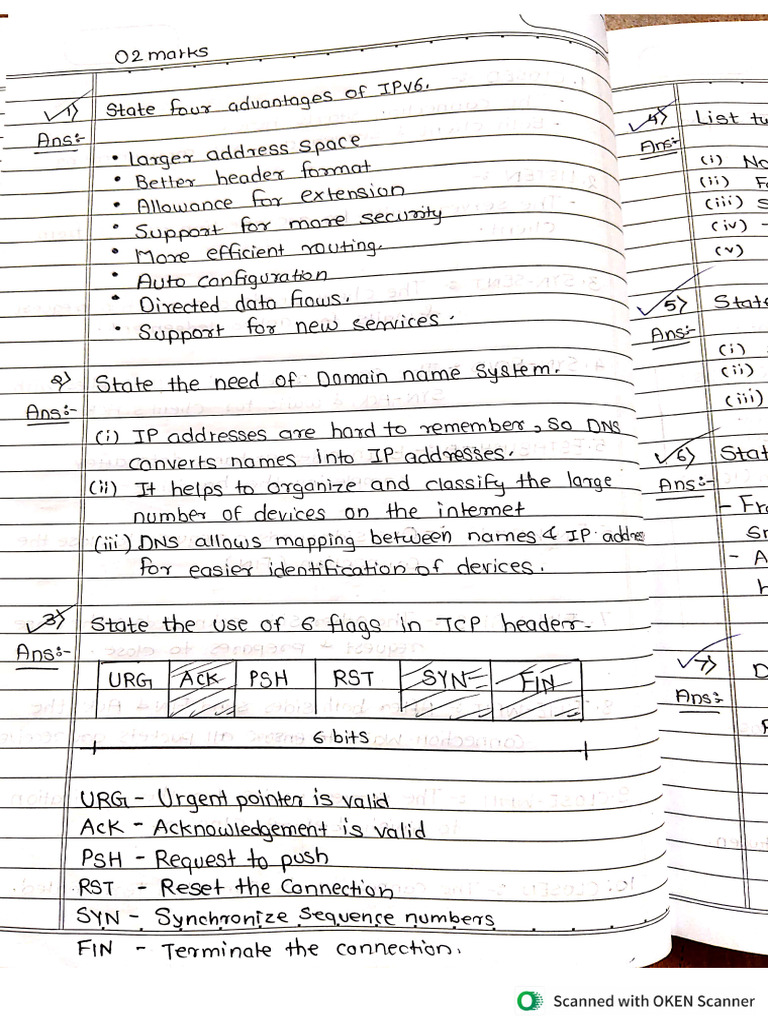 02 marks
1) State four advantages of IPv6.
Ans:-
• Larger address space
• Better header format
• Allowance for extension
• Support for more security
• More efficient routing.
• Auto configuration
• Directed data flows.
• Support for new services.
2) State the need of Domain name system.
Ans:-
(i) IP addresses are hard to remember, so DNS
converts names into IP addresses.
(ii) It helps to organize and classify the large
number of devices on the internet
(iii) DNS allows mapping between names & IP addres
for easier identification of devices.
3) State the use of 6 flags in TCP header.
Ans:-
URG ACK PSH RST SYN FIN
6 bits
URG - Urgent pointer is valid
ACK - Acknowledgement is valid
PSH - Request to push
RST - Reset the Connection
SYN - Synchronize sequence numbers
FIN - Terminate the connection.
4) List
Ans:-
(i)
(ii)
(iii)
(iv)
(v)
5) State
Ans:-
(i)
(ii)
(iii)
6)
Ans:-
7)
Ans:-
Scanned with OKEN Scanner